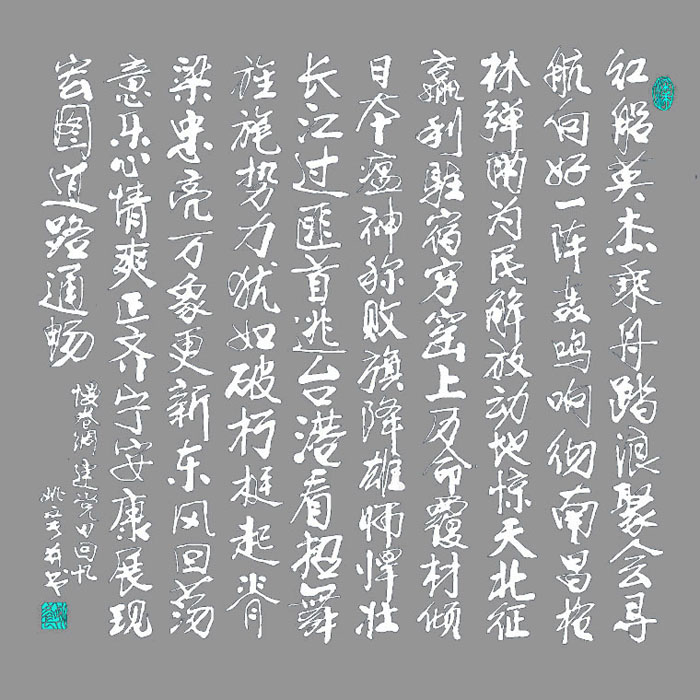 红船英杰乘舟踏浪聚会寻
航向好一阵轰鸣响彻南昌枪
林弹雨为民解放动地惊天北征
赢利驻宿穷窑上万命覆材倾
日本瘟神称败旗降雄师悍壮
长江过匪首逃台港看扭舞
旌旄势力犹如破朽挺起脊
梁忠亮万象更新东风回荡
意乐心情爽正齐宁安康展现
宏图道路通畅
慢卷绸建党日回忆
姚文书